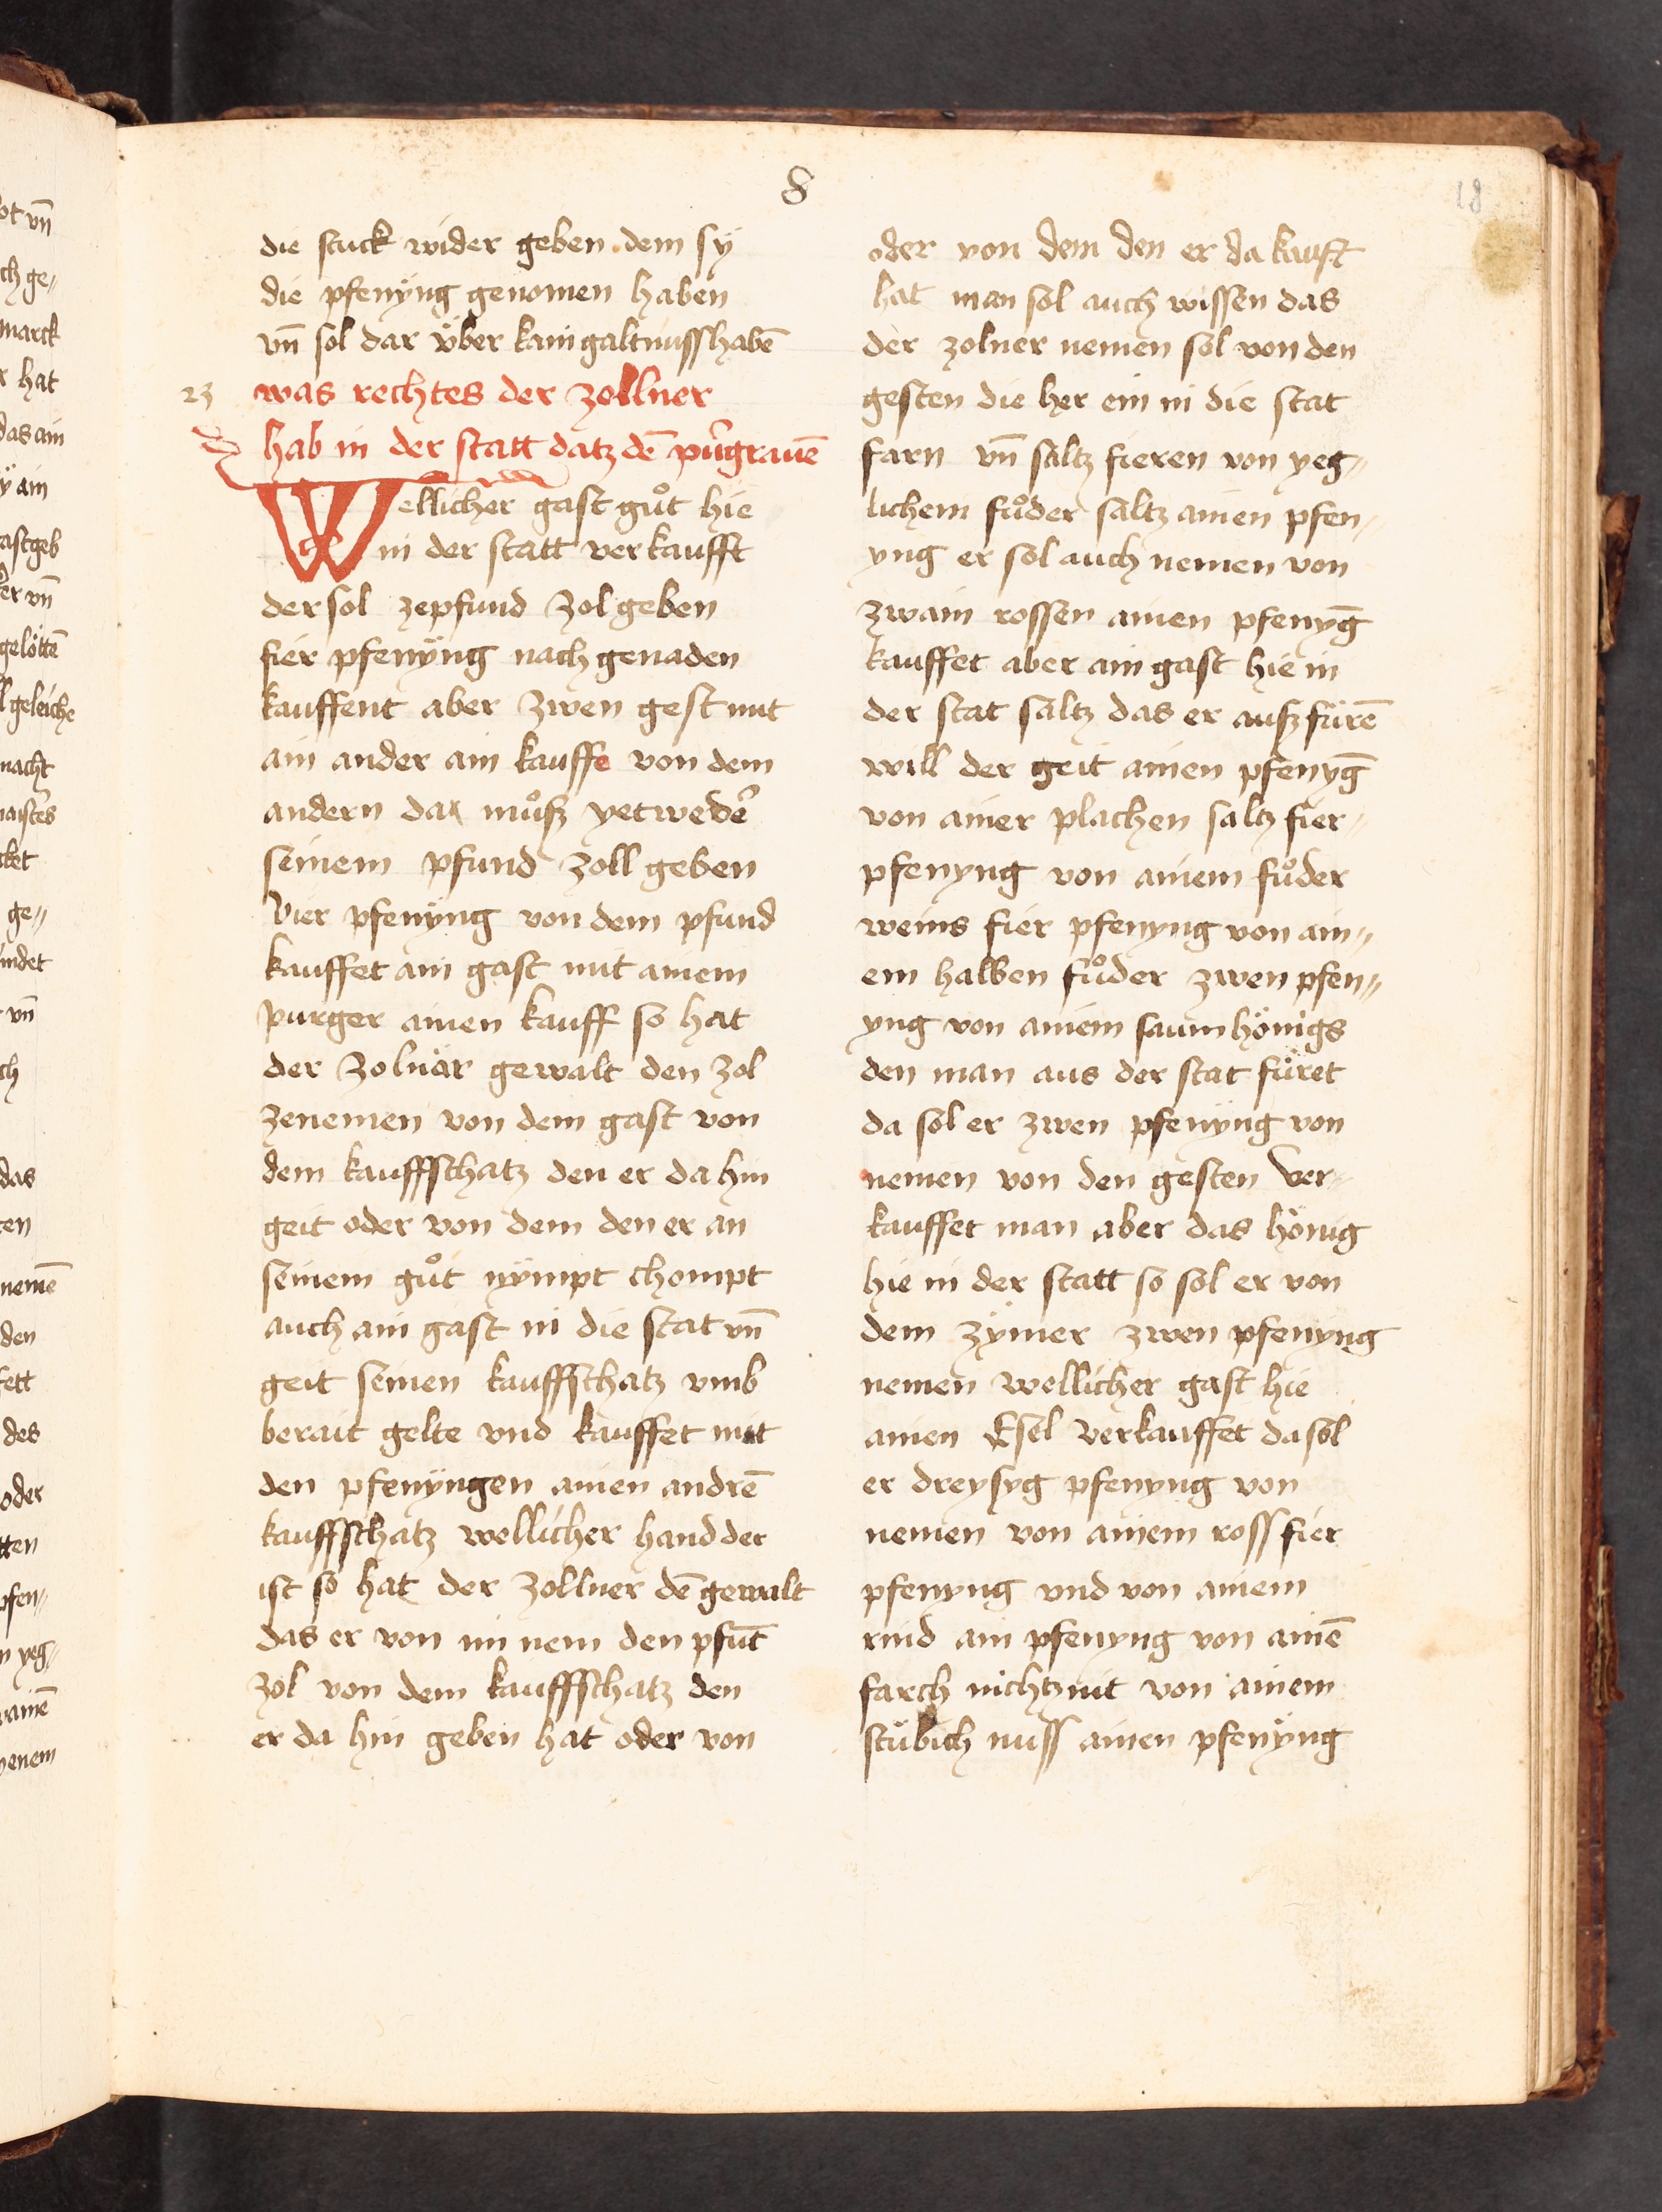 8
18
die stuck wider geben dem sÿ
die pfenÿng genomen haben
vn̄ sol dar vͤber kain galtnuss habē
23 was rechtes der zollner
hab in der statt datz dē pur̄grauē
Wellicher gast gůt hie
in der statt verkaufft
der sol zepfund zol geben
fier pfenÿng nach genaden
kauffent aber zwen gest mit
ain ander ain kauffe von dem
andern da můsz yetwedē
seinem pfund zoll geben
vier pfenÿng von dem pfund
kauffet ain gast mit ainem
purger ainen kauff so hat
der zolnär gewalt den zol
zenemen von dem gast von
dem kauffschatz den er da hin
geit oder von dem den er an
seinem gůt nÿmpt chompt
auch ain gast in die stat vn̄
geit seinen kauffschatz vmb
berait gelte vnd kauffet mit
den pfenÿngen ainen andrē
kauffschatz wellicher hand der
ist so hat der zollner dē gewalt
das er von im nem den pfūt
zol von dem kauffschatz den
er da hin geben hat oder von
oder von dem den er da kauft
hat man sol auch wissen das
der zolner nemen sol von den
gesten die her ein in die stat
farn vn̄ saltz fieren von yeg⸗
lichem fůder saltz ainen pfen⸗
yng er sol auch nemen von
zwain rossen ainen pfenyḡ
kauffet aber ain gast hie in
der stat saltz das er ausz fürē
will der geit ainen pfenyḡ
von ainer plachen saltz fier⸗
pfenyng von ainem fůder
weins fier pfenyng von ain⸗
em halben fůder zwen pfen⸗
yng von ainem saum hönigs
den man aus der stat füret
da sol er zwen pfenÿng von
nemen von den gesten ver⸗
kauffet man aber das hönig
hie in der statt so sol er von
dem zÿmer zwen pfenyng
nemen wellicher gast hie
ainen Esel verkauffet da sol
er dreysyg pfenyng von
nemen von ainem ross fier
pfenyng vnd von ainem
rind ain pfenyng von ainē
farch nichtznit von ainem
stübich nuss ainen pfenÿng